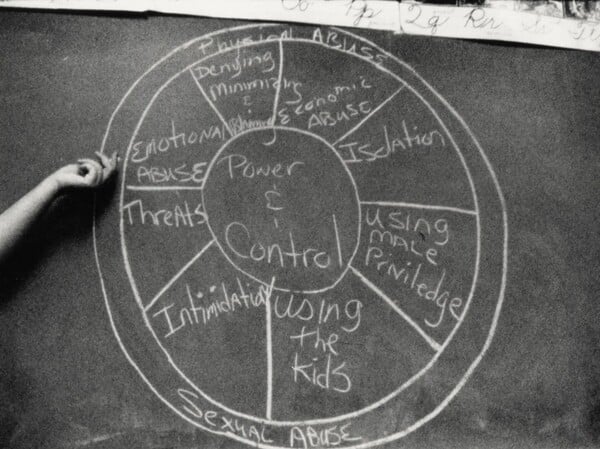 Pp Qq Rr
Physical ABUSE
Denying
Minimizing
&
Blaming
Economic
ABUSE
Isolation
USING
MALE
Priviledge
USING
the
Kids
Intimidation
Threats
EMOTIONAL
ABUSE
Power
&
Control
SEXUAL ABUSE